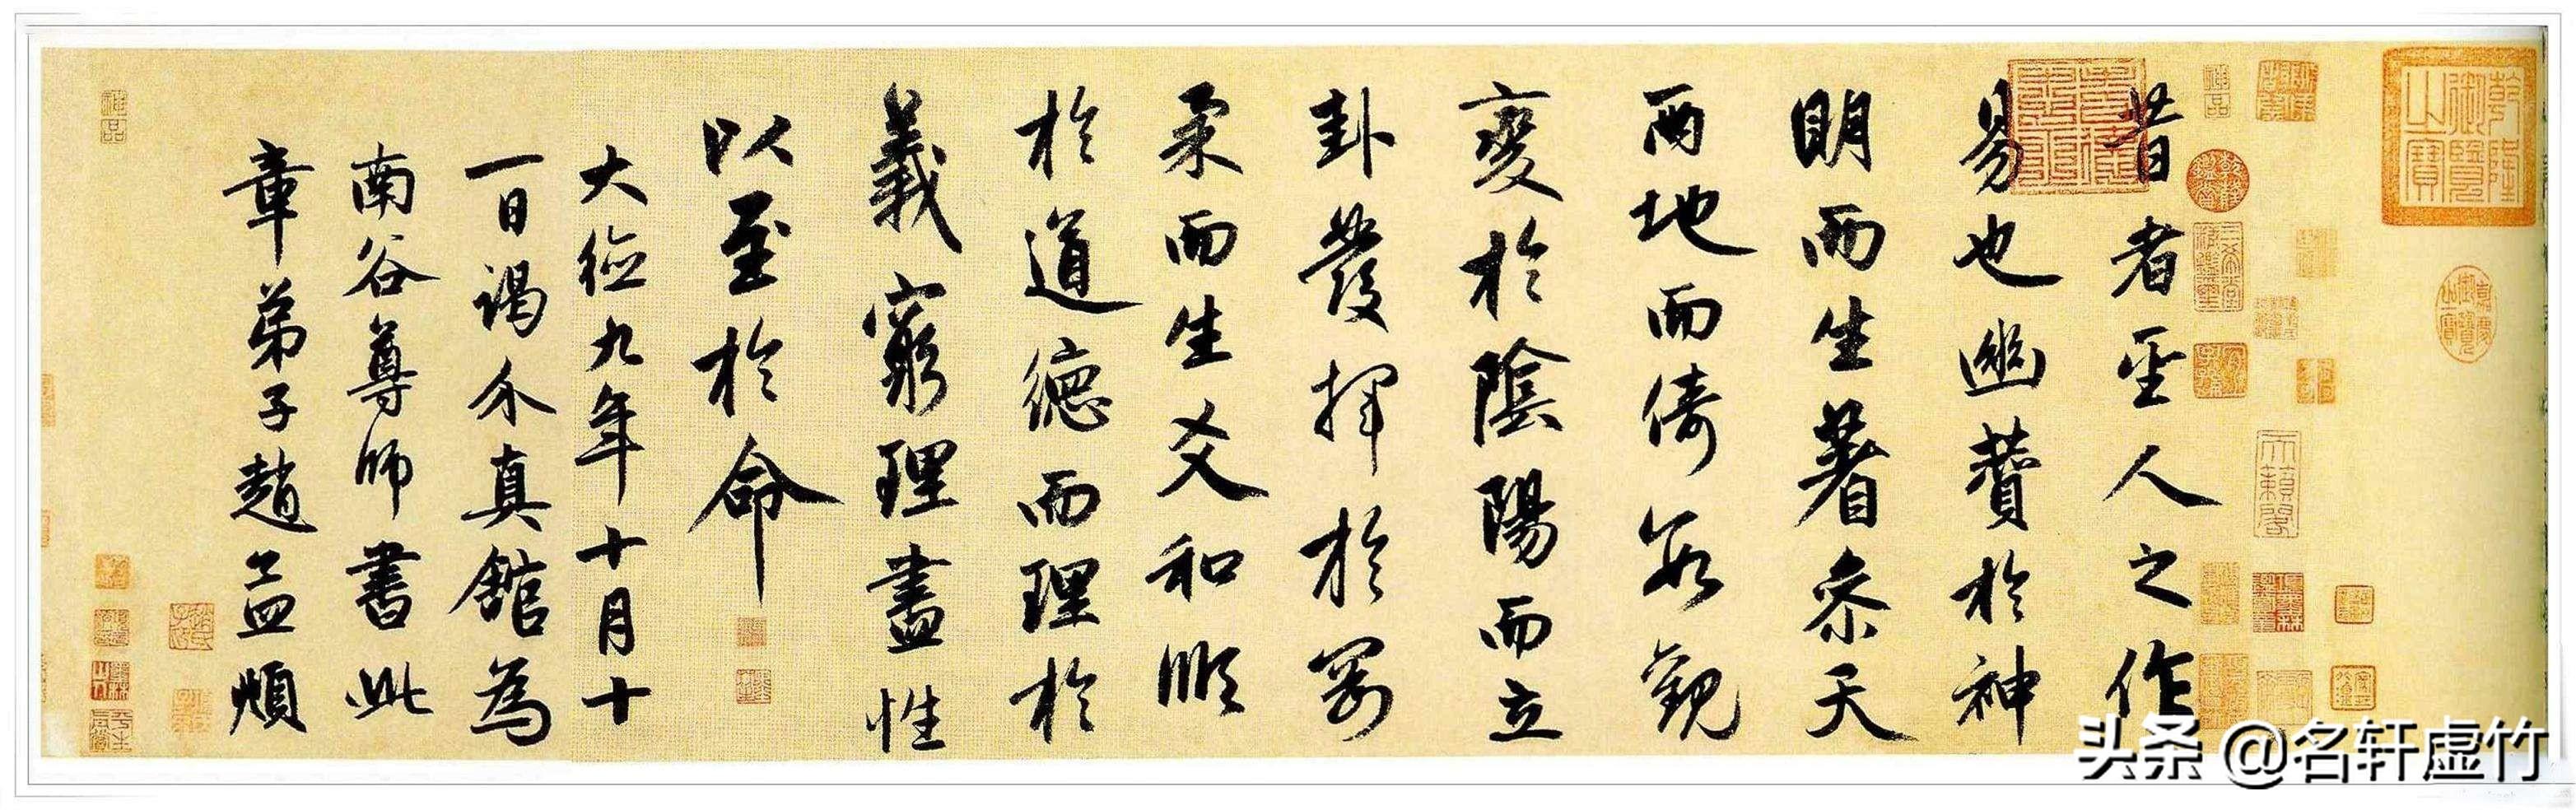 昔者聖人之作
易也幽贊於神
明而生蓍參天
兩地而倚數觀
變於陰陽而立
卦發揮於剛
柔而生爻和順
於道德而理於
義窮理盡性
以至於命
大德九年十月十
一日謁介真館為
南谷尊師書此
章弟子趙孟頫
乾隆御覽之寶
神品
頭条 @名轩虚竹